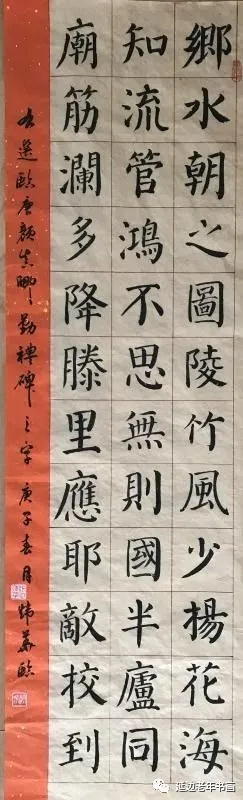 鄉水朝之圖陵竹風少揚花海
知流管鴻不思無則國半廬同
廟筋瀾多降滕里應耶敵挍到
選臨唐顏真卿勤禮碑之字 庚子春月
延边老年书画